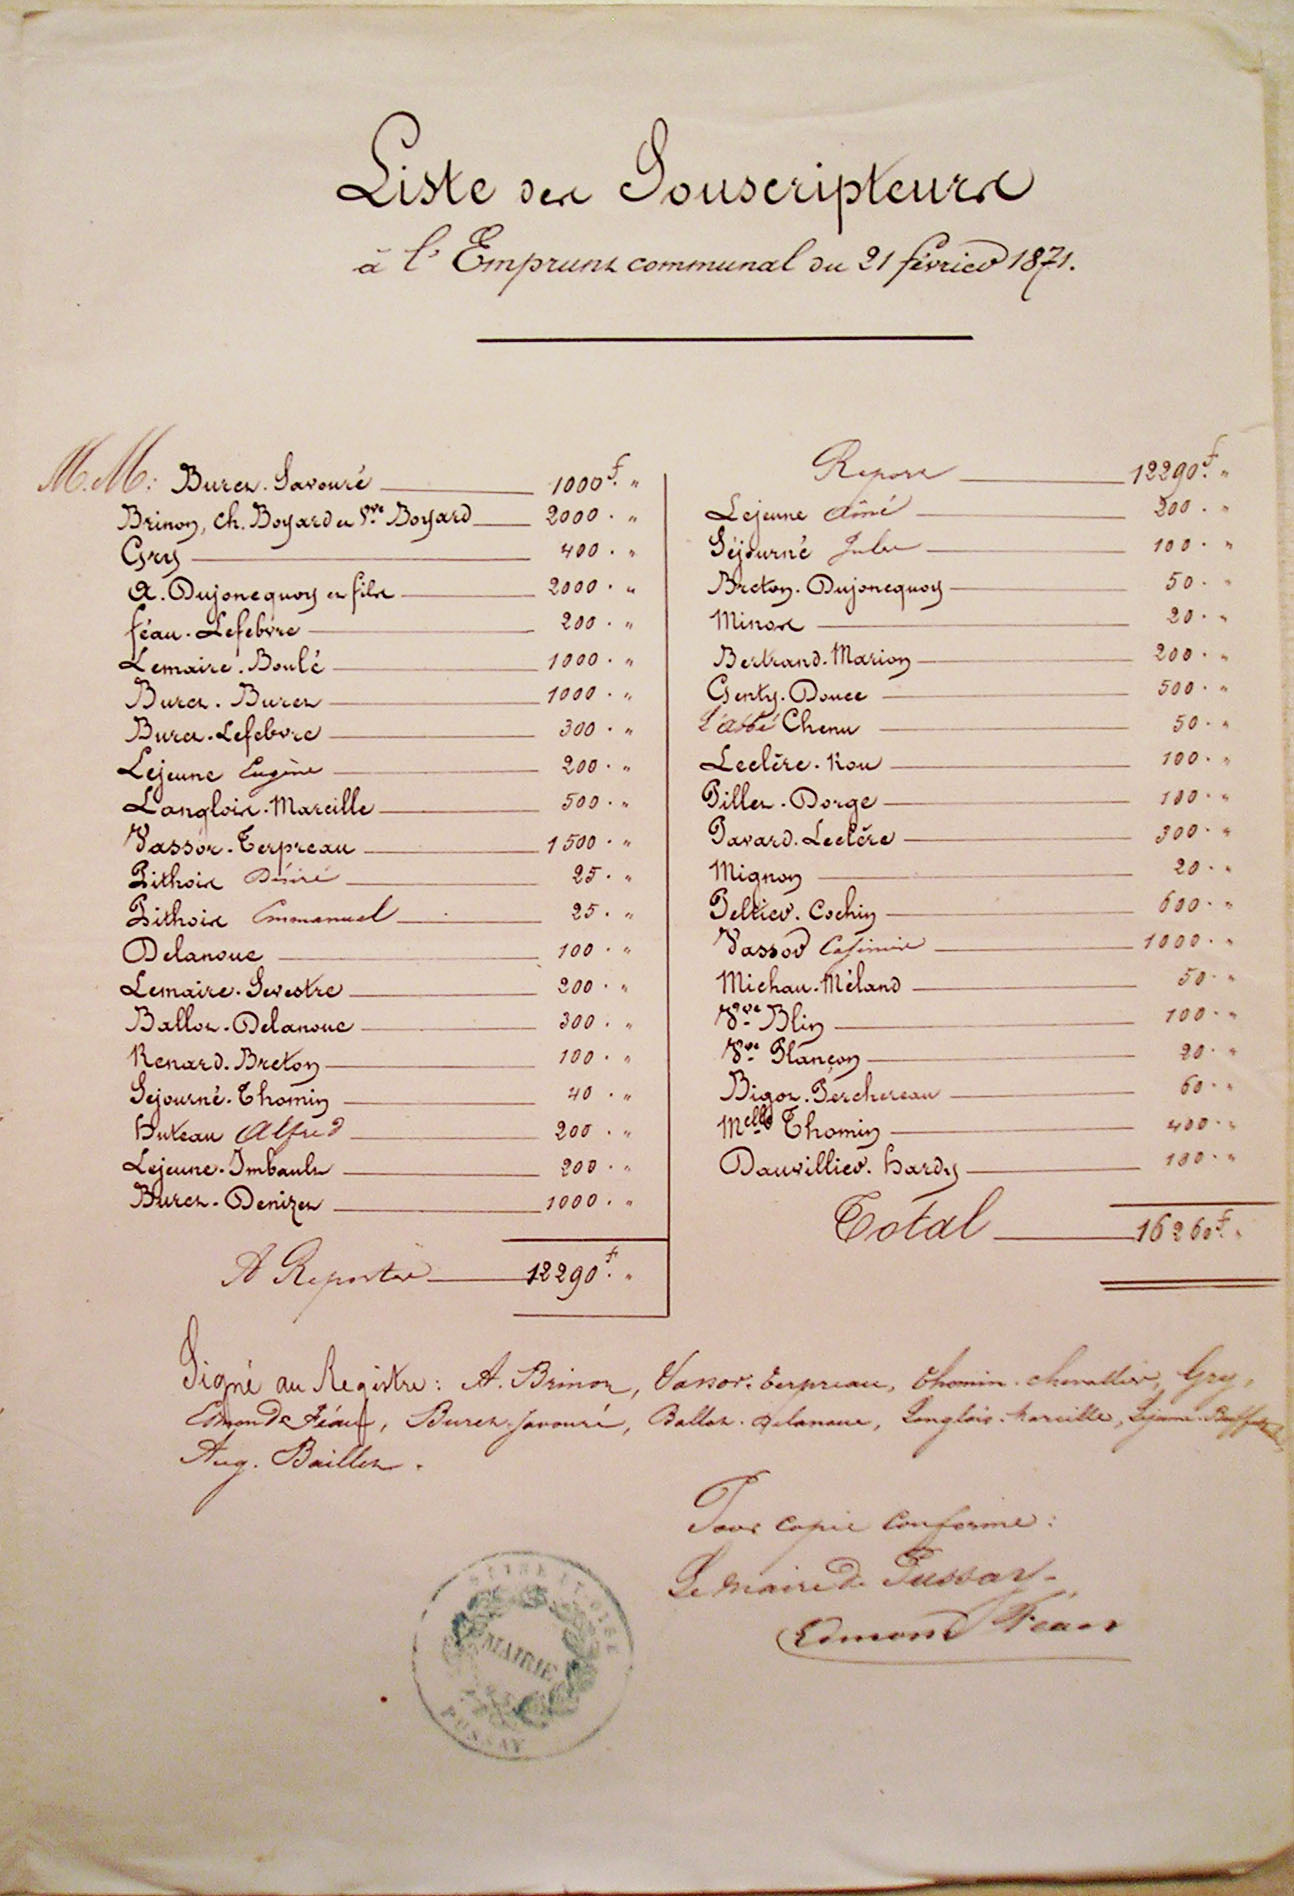 Liste des Souscripteurs
à l'Emprunt communal du 21 février 1871.
M.M: Buret-Savouré 1000f. "
Brinon, Ch. Boyard et Vve Boyard 2000. "
Gry 400. "
A. Dujoncquoy et fils 2000. "
Féau-Lefebvre 200. "
Lemaire-Boulé 1000. "
Buret-Buret 1000. "
Buret-Lefebvre 300. "
Lejeune Eugène 200. "
Langlois-Marcille 500. "
Vassor-Terpreau 1500. "
Pithois Désiré 25. "
Pithois Emmanuel 25. "
Delanoue 100. "
Lemaire-Sevestre 200. "
Ballot-Delanoue 300. "
Renard-Breton 100. "
Sejourné-Thomin 40. "
Huteau Alfred 200. "
Lejeune-Imbault 200. "
Buret-Denizet 1000. "
A Reporter 12290f. "
Report 12290f. "
Lejeune aîné 200. "
Séjourné Jules 100. "
Breton-Dujoncquoy 50. "
Minost 20. "
Bertrand-Marion 200. "
Genty-Douce 500. "
L'abbé Chenu 50. "
Leclère-Rou 100. "
Pillet-Dorge 100. "
Pavard-Leclère 300. "
Mignon 20. "
Peltier-Cochin 600. "
Vassor Casimir 1000. "
Michau-Méland 50. "
Vve Blin 100. "
Vve Plançon 20. "
Bigot-Perchereau 60. "
Melle Thomin 400. "
Dauvillier-Hardy 100. "
Total 16260f. "
Signé au Registre: A. Brinon, Vassor-Terpreau, Thomin-Chevallier, Gry,
Edmond Féau, Buret-Savouré, Ballot-Delanoue, Langlois-Marcille, Lejeune
Aug. Baillet.
Pour copie conforme:
Le Maire de Pussay.
Edmond Féau
SEINE ET OISE
MAIRIE
PUSSAY